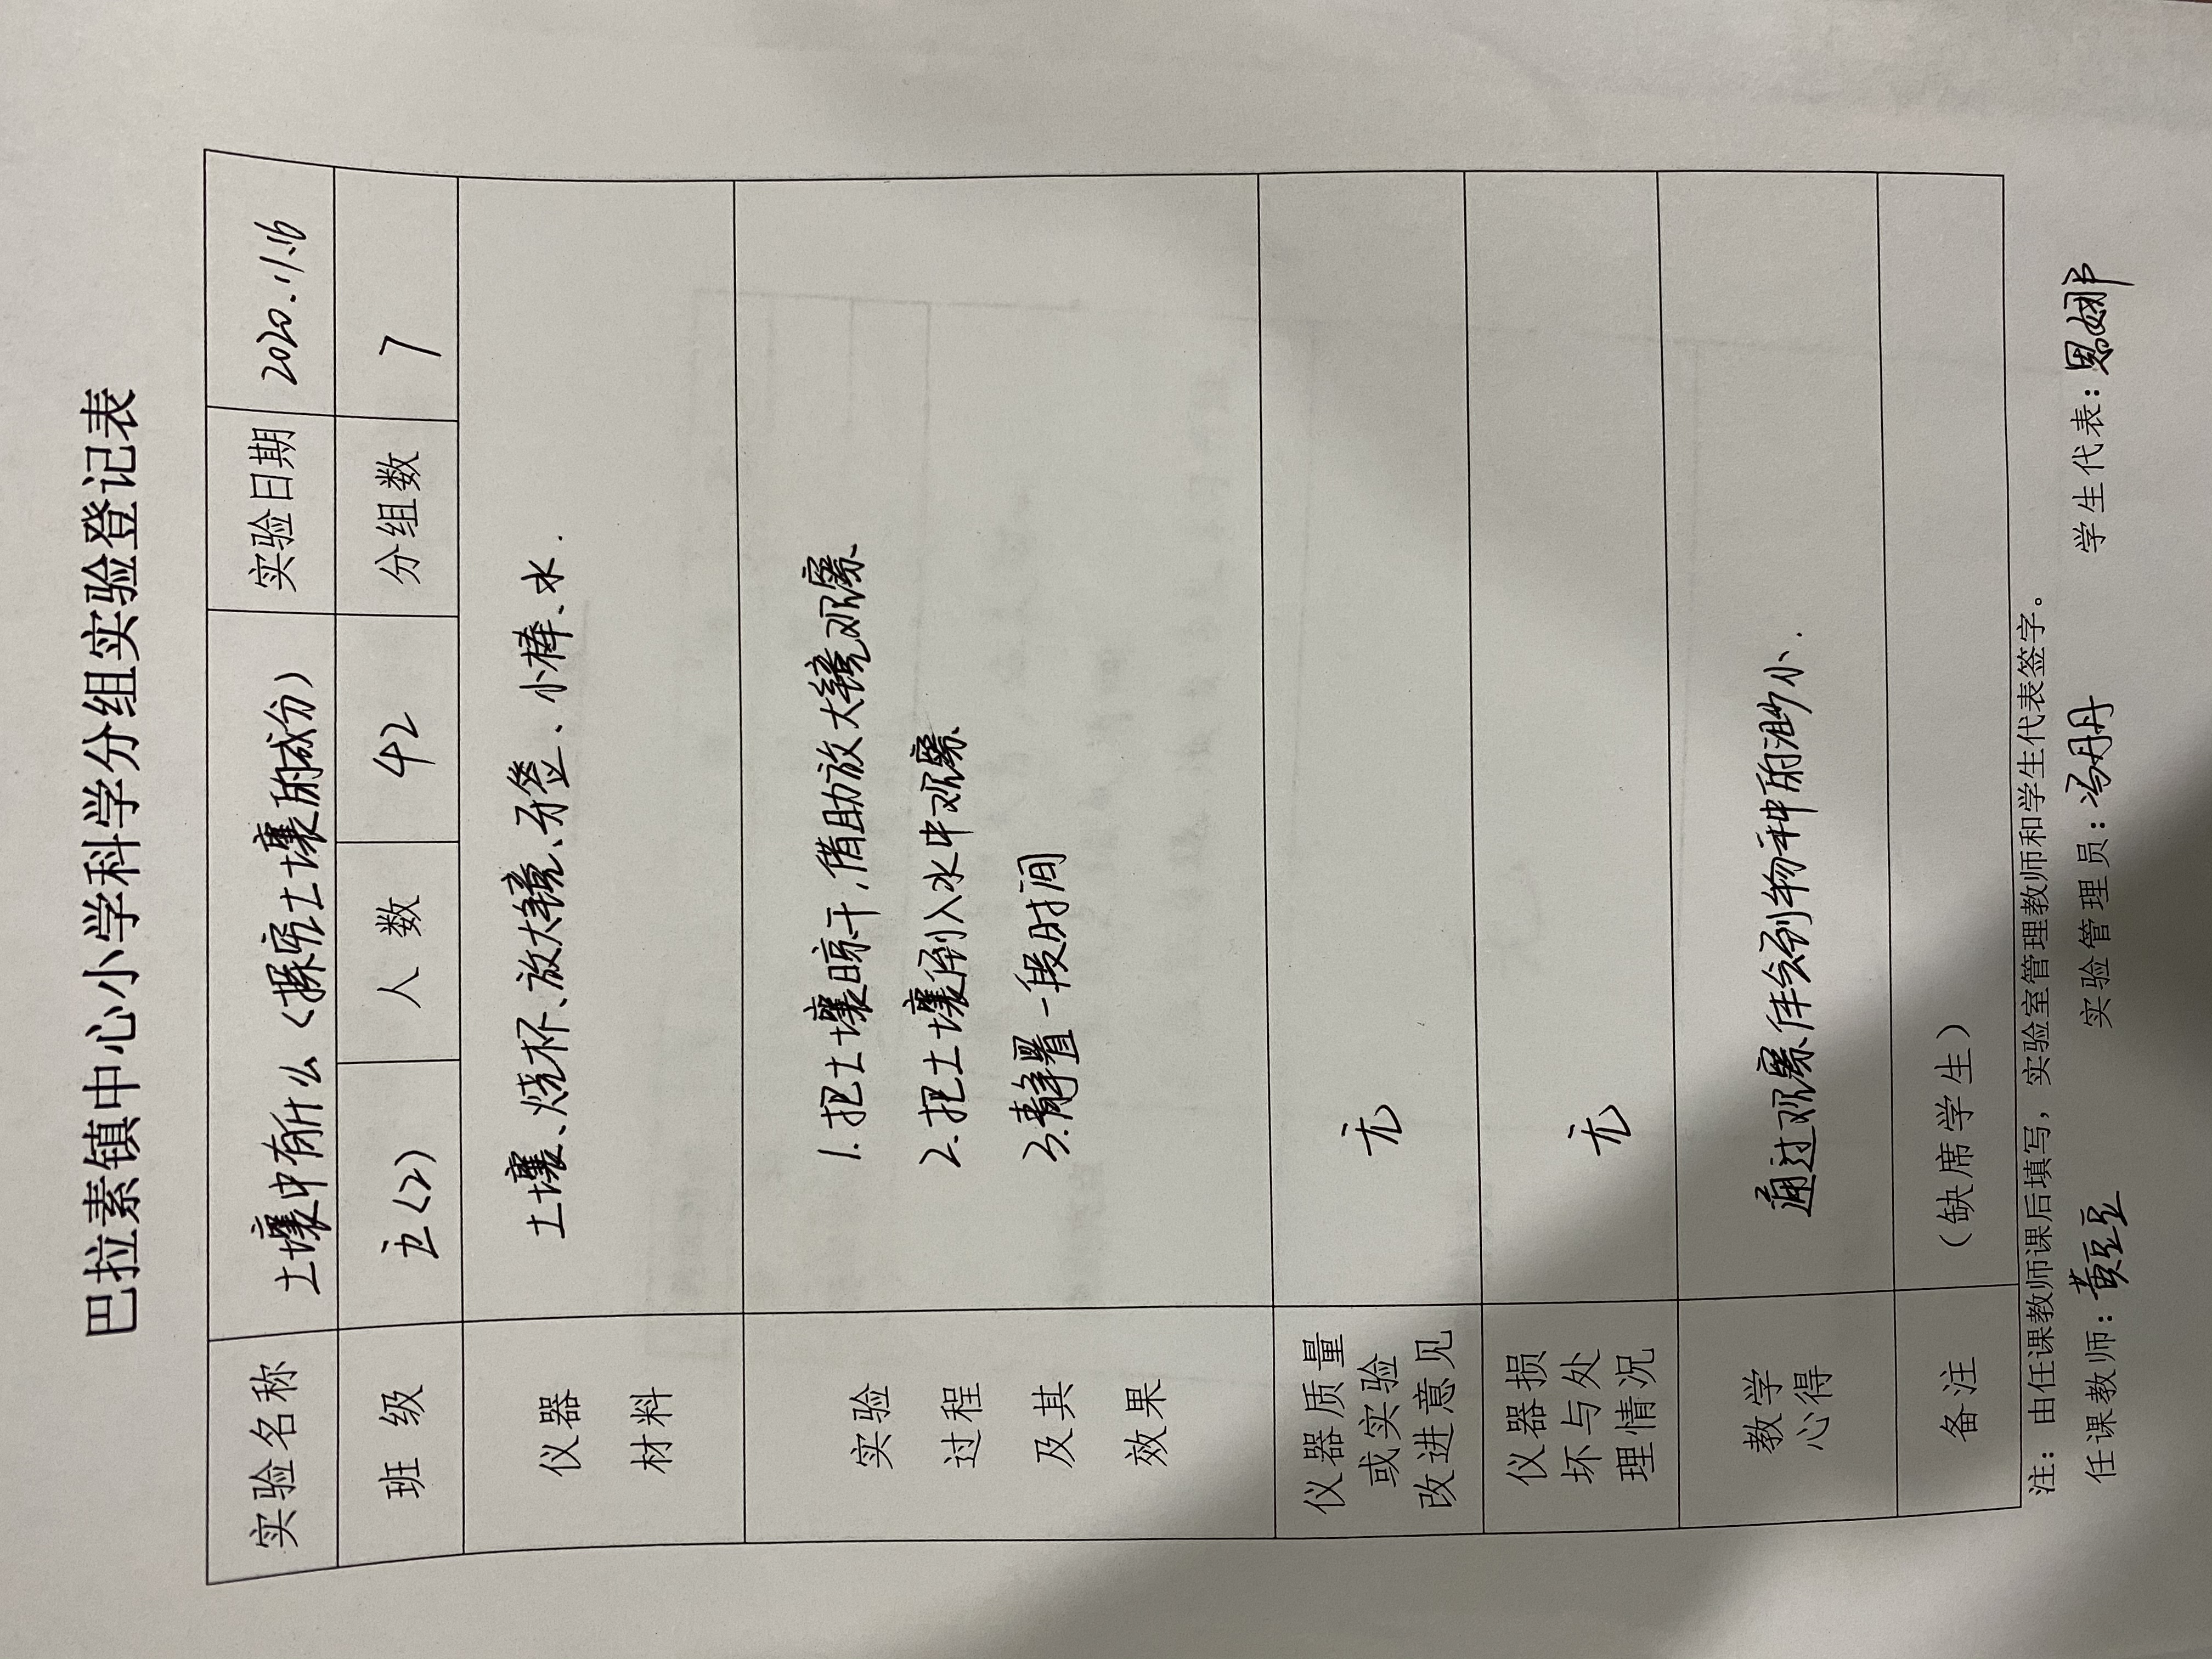 巴拉素镇中心小学科学分组实验登记表
实验名称 土壤中有什么(探究土壤的成分) 实验日期 2020.11.16
班级 五(2) 人数 42 分组数 7
仪器 土壤、烧杯、放大镜、牙签、小棒、水.
材料
实验 1.把土壤晾干,借助放大镜观察
过程 2.把土壤倒入水中观察
及其 3.静置一段时间
效果
仪器质量
或实验 无
改进意见
仪器损
坏与处 无
理情况
教学 通过观察体会到物种的渺小.
心得
备注 (缺席学生)
注:由任课教师课后填写,实验室管理教师和学生代表签字。
任课教师:黄豆豆 实验管理员:冯丹丹 学生代表: